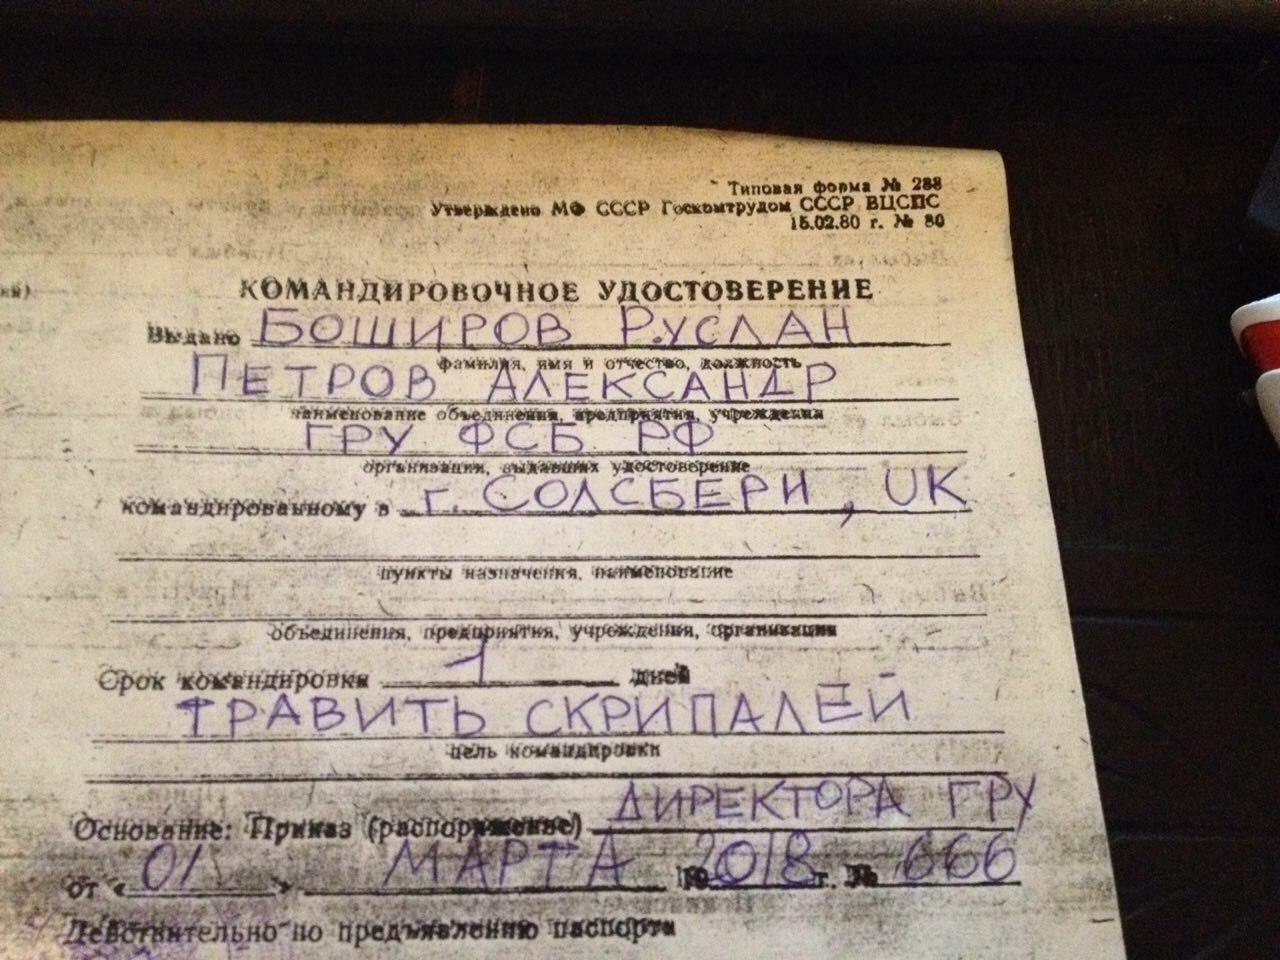 Типовая форма № 288
Утверждено МФ СССР Госкомтрудом СССР ВЦСПС
15.02.80 г. № 80
КОМАНДИРОВОЧНОЕ УДОСТОВЕРЕНИЕ
Выдано БОШИРОВ РУСЛАН
фамилия, имя и отчество, должность
ПЕТРОВ АЛЕКСАНДР
наименование объединения, предприятия, учреждения
ГРУ ФСБ РФ
организации, выдавших удостоверение
командированному в г. СОЛСБЕРИ, UK
пункты назначения, наименование
объединения, предприятия, учреждения, организации
Срок командировки 1 дней
ТРАВИТЬ СКРИПАЛЕЙ
цель командировки
Основание: Приказ (распоряжение) ДИРЕКТОРА ГРУ
от «01» МАРТА 2018 г. № 666
Действительно по предъявлению паспорта